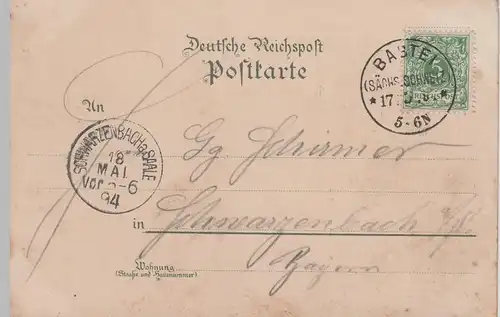 Deutsche Reichspost
Postkarte
BASTEI
(SÄCHS. SCHWEIZ)
* 17. 5. *
5-6N
5
An
Gg Schirmer
SCHWARZENBACH a. SAALE
18
MAI
Vor 5-6
94
in Schwarzenbach a/S.
Bayern
Wohnung
(Straße und Hausnummer)